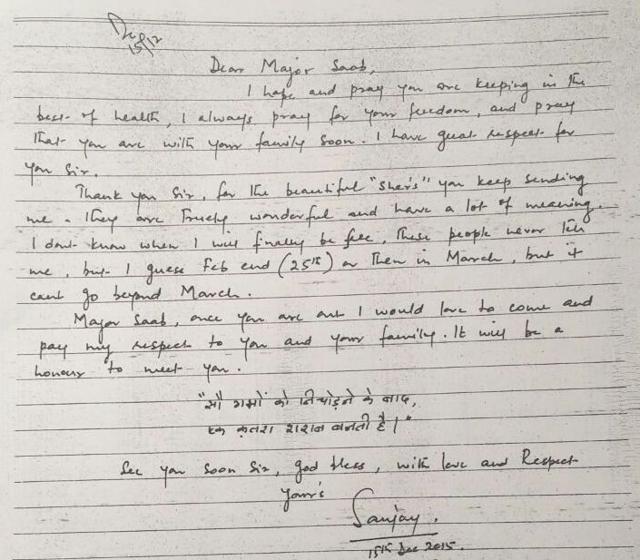 Dec
15/12
Dear Major Saab,
I hope and pray you are keeping in the
best of health, I always pray for your freedom, and pray
that you are with your family soon. I have great respect for
you Sir.
Thank you Sir, for the beautiful "Sher's" you keep sending
me. They are truely wonderful and have a lot of meaning.
I dont know when I will finally be free, these people never tell
me, but I guess Feb end (25th) or then in March, but it
cant go beyond March.
Major Saab, once you are out I would love to come and
pay my respect to you and your family. It will be a
honour to meet you.
"सौ गमों को निचोड़ने के बाद,
एक क़तरा शराब बनती है।"
See you soon Sir, god bless, with love and Respect
Your's
Sanjay.
15th Dec 2015.